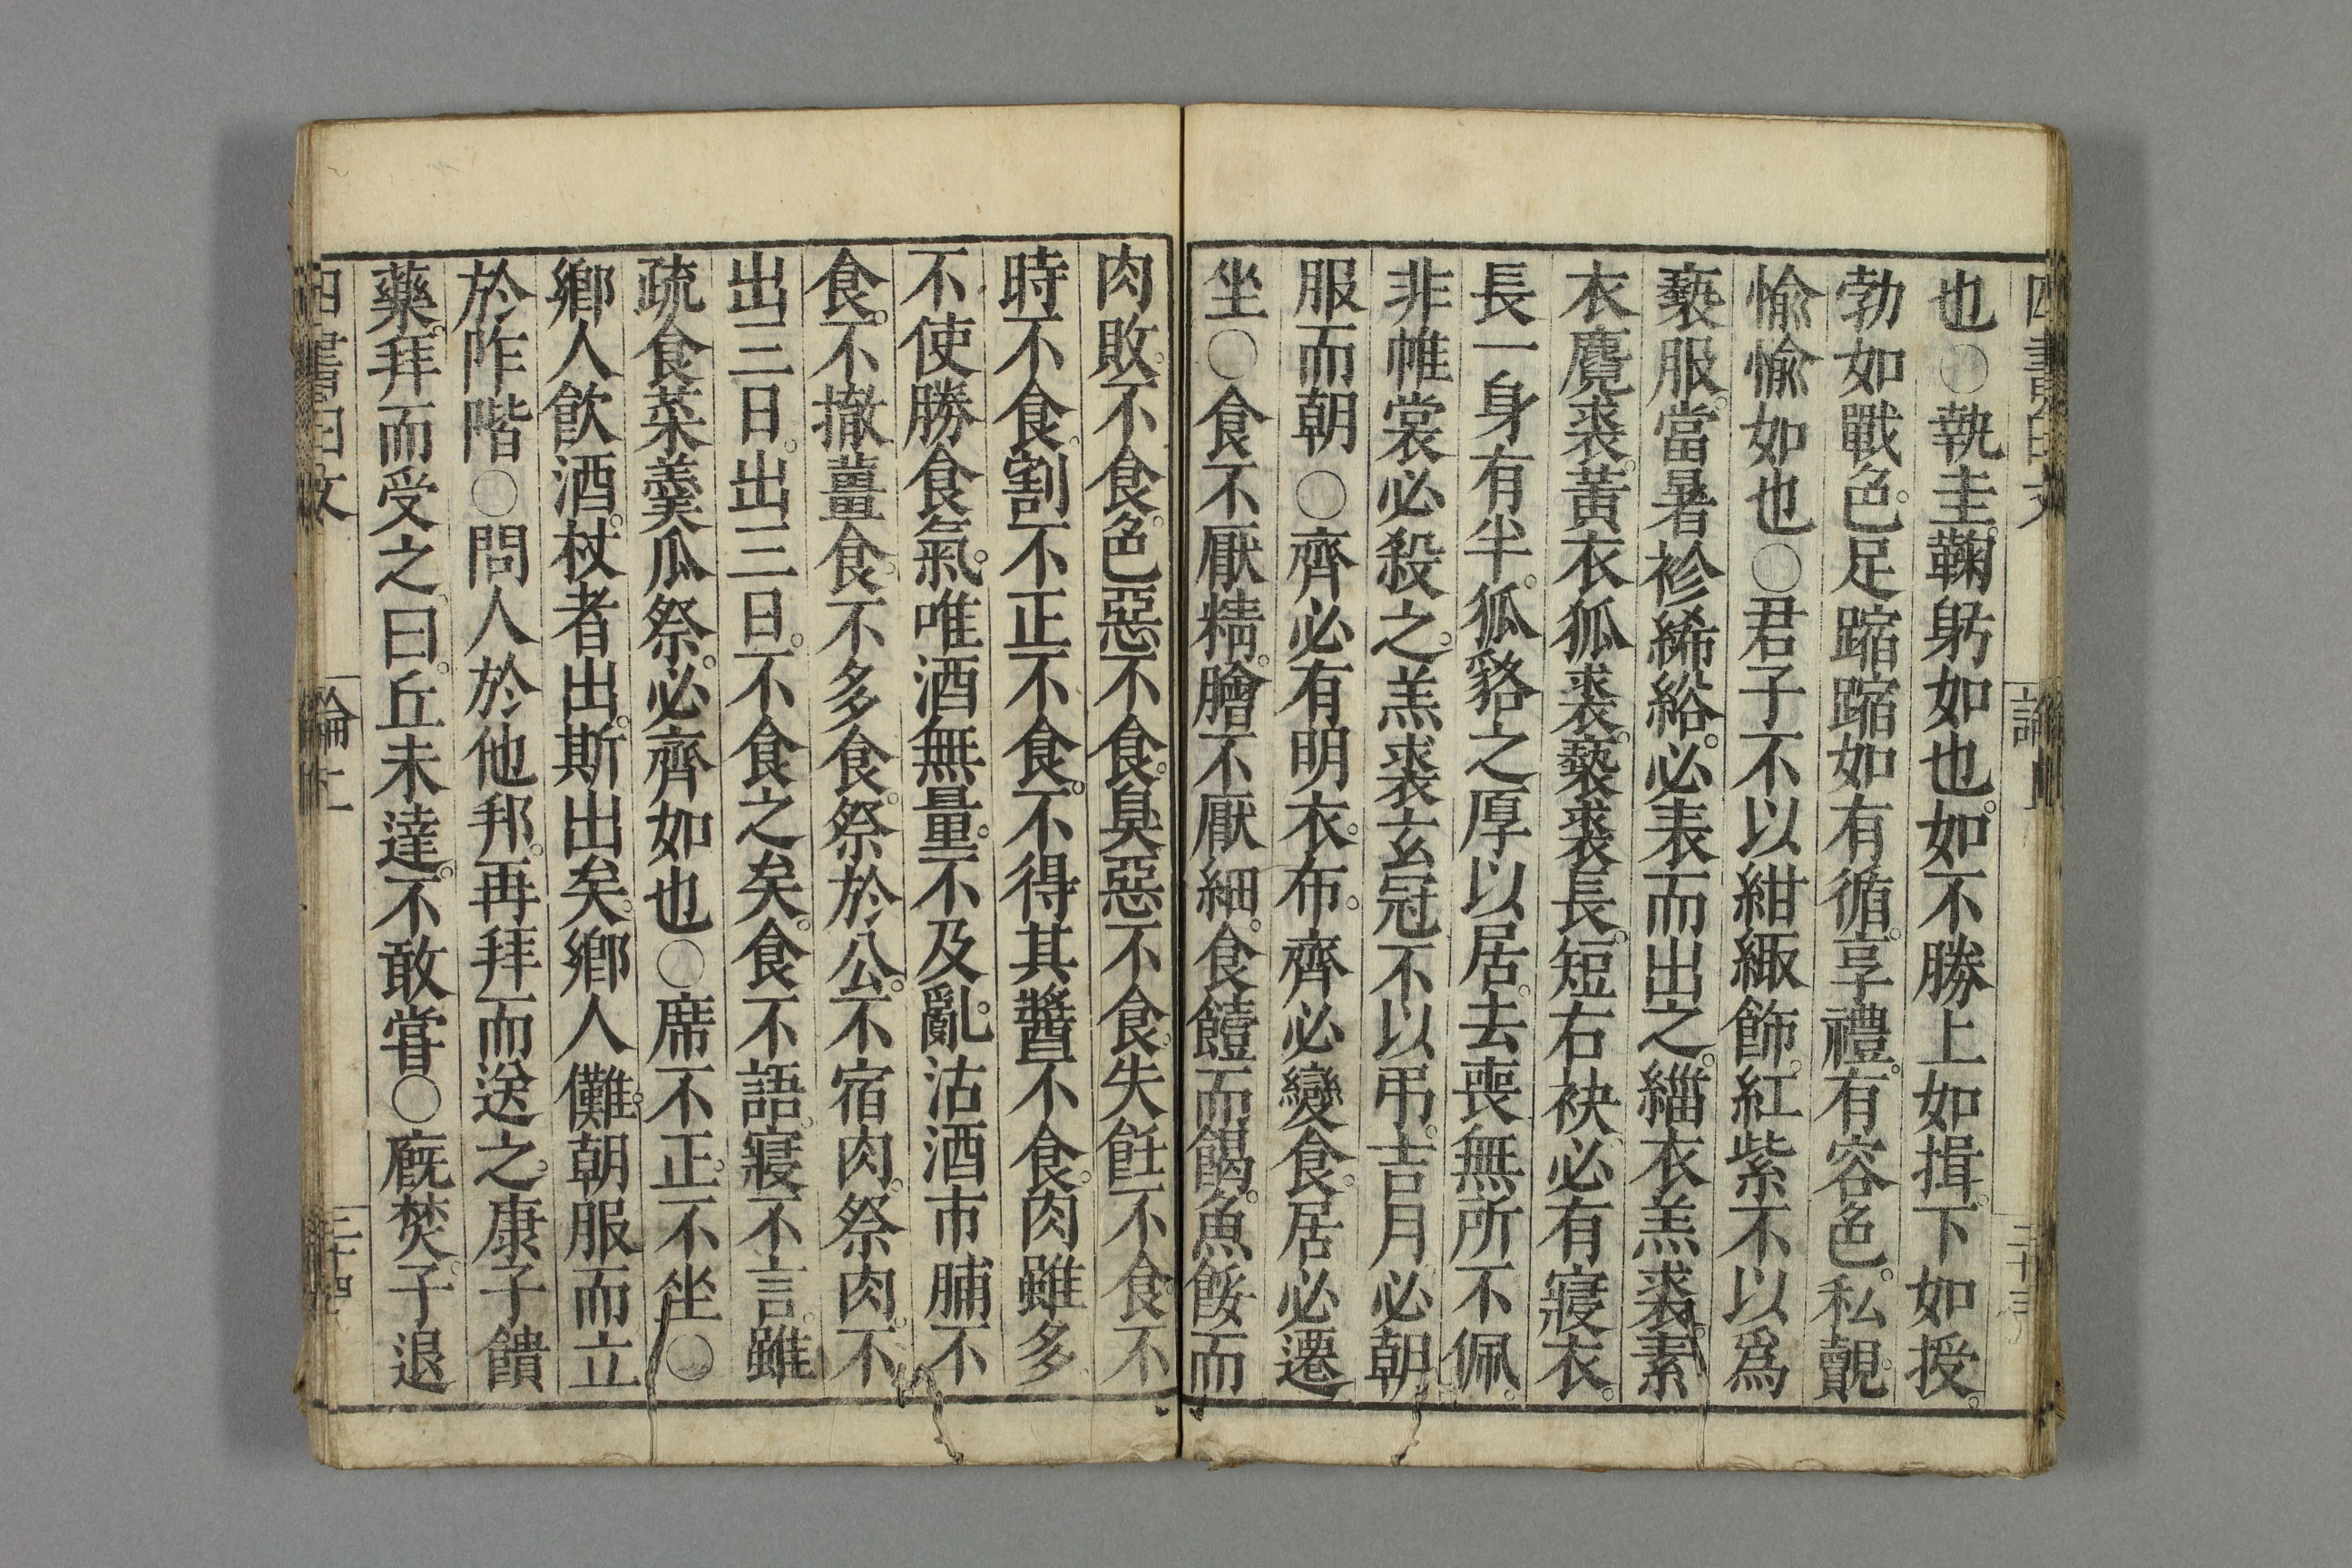 也○執圭。鞠躬如也。如不勝上如揖。下如授。
勃如戰色。足蹜蹜如有循。享禮。有容色。私覿。
愉愉如也○君子不以紺緅飾。紅紫不以爲
褻服。當暑袗絺綌。必表而出之。緇衣羔裘。素
衣麑裘。黃衣狐裘。褻裘長。短右袂。必有寢衣。
長一身有半。狐貉之厚以居。去喪無所不佩。
非帷裳必殺之。羔裘玄冠不以弔。吉月必朝
服而朝○齊必有明衣。布。齊必變食。居必遷
坐○食不厭精。膾不厭細。食饐而餲。魚餒而
肉敗。不食。色惡不食。臭惡不食。失飪不食。不
時不食。割不正不食。不得其醬不食。肉雖多
不使勝食氣。唯酒無量。不及亂。沽酒市脯不
食。不撤薑食。不多食。祭於公。不宿肉。祭肉。不
出三日。出三日。不食之矣。食不語。寢不言。雖
疏食菜羹瓜祭。必齊如也○席不正。不坐○
鄉人飲酒。杖者出。斯出矣。鄉人儺。朝服而立
於阼階○問人於他邦。再拜而送之。康子饋
藥。拜而受之。曰。丘未達。不敢嘗○廐焚。子退
四書白文
論上
二十四